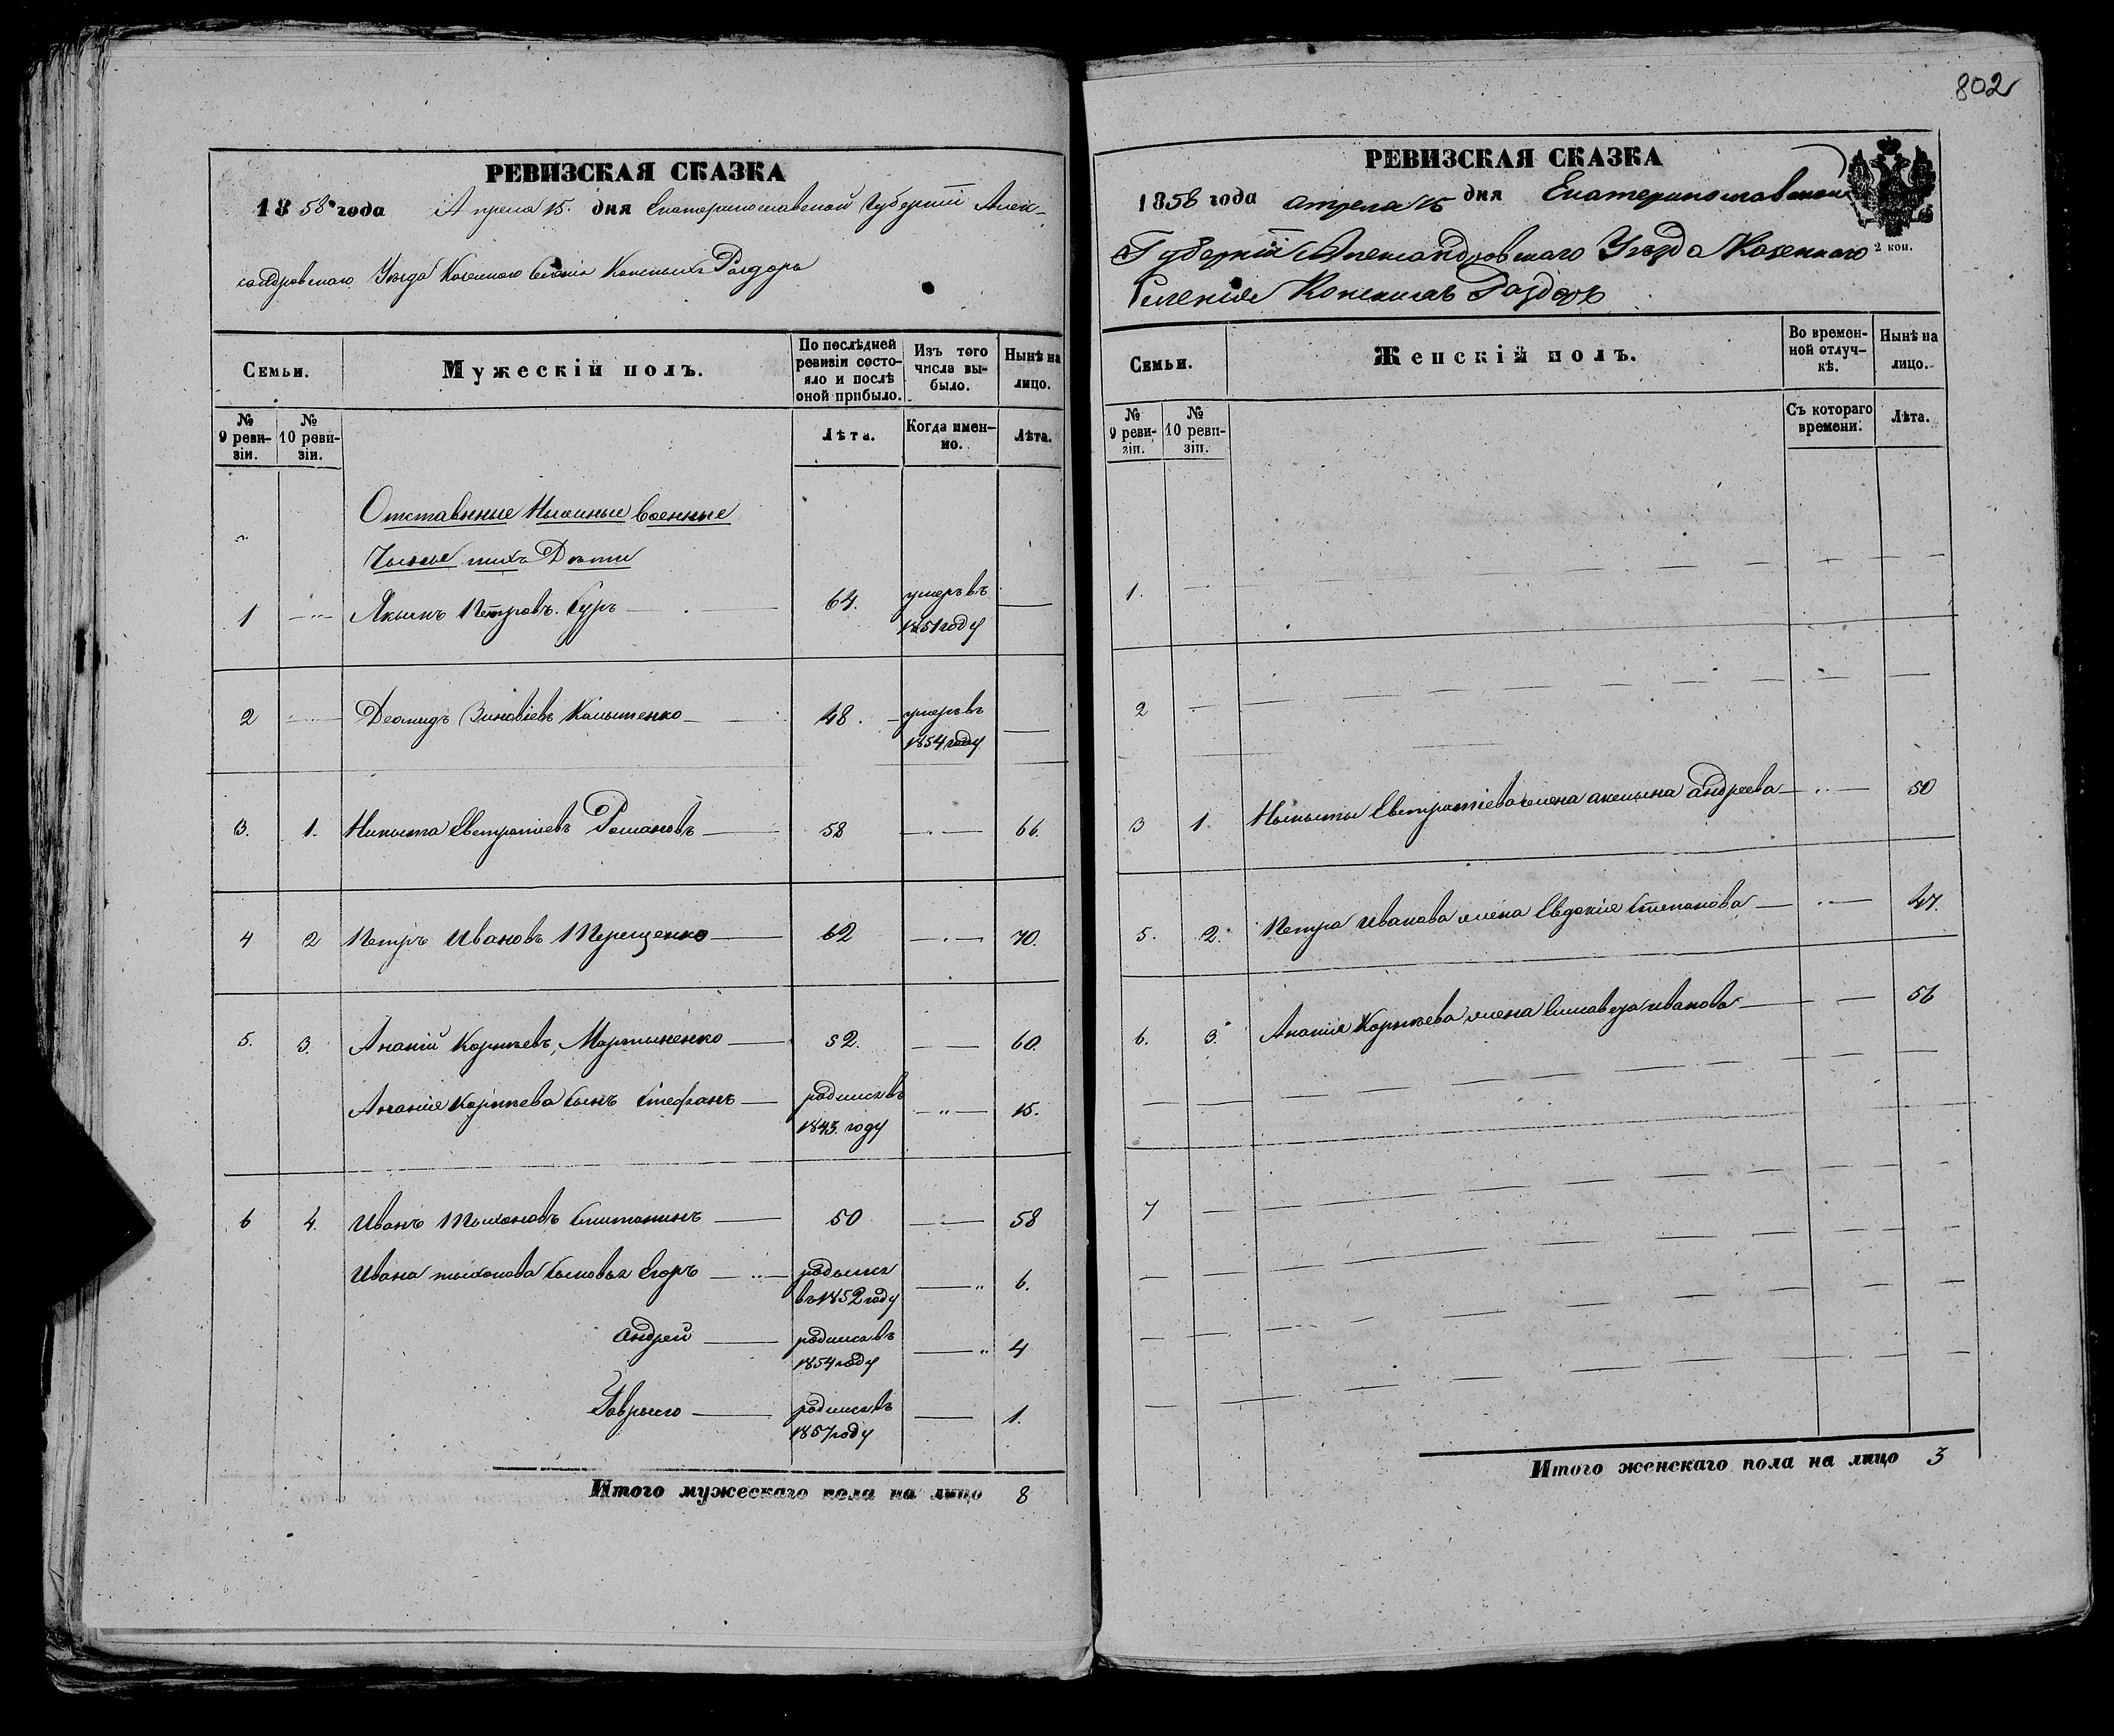 802
РЕВИЗСКАЯ СКАЗКА
1858 года Апреля 15. дня Екатеринославской Губерніи Алек-
сандровскаго Уезда Казеннаго Селенія Конскихъ Раздоръ
Семьи.
Мужескій полъ.
По послѣдней ревизіи состо-
яло и послѣ оной прибыло.
Изъ того числа вы-
было.
Нынѣ на лицо.
№ 9 реви-
зіи.
№ 10 реви-
зіи.
Лѣта.
Когда имен-
но.
Лѣта.
Отставные Нижные Военные
Чины ихъ Дети
1 Якымъ Петровъ 64. умеръ въ
1851 году
2 Деомидъ Зиновіевъ 48. умеръ въ
1854 году
3. 1. Никыта Евстратіевъ Романовъ 58 66.
4 2 Петръ Ивановъ Терещенко 62 70.
5. 3. Ананій Корнѣевъ Мартыненко 52. 60.
Ананія Корнѣева сынъ Стефанъ родился въ
1843. году 15.
6 4. Иванъ Тихоновъ 50 58
Ивана тихонова сыновья Егоръ родился
въ 1852 году 6.
андрей родился въ
1854 году 4
Гаврыло родился въ
1857 году 1.
Итого мужескаго пола на лицо 8
РЕВИЗСКАЯ СКАЗКА
1858 года апреля 15 дня Екатеринославской
Губерніи Александровскаго Уѣзда Казеннаго
2 коп.
Селенія Конскихъ Раздоръ
Семьи.
Женскій полъ.
Во времен-
ной отлуч-
кѣ.
Нынѣ на лицо.
№ 9 реви-
зіи.
№ 10 реви-
зіи.
Съ котораго времени.
Лѣта.
1.
2
3 1. Никыты Евстратіева жена акелына андреева 50
5. 2. Петра Иванова жена Евдокія Степанова 47.
6. 3. Ананія Корнѣева жена Елисавета иванова 56
7
Итого женскаго пола на лицо 3